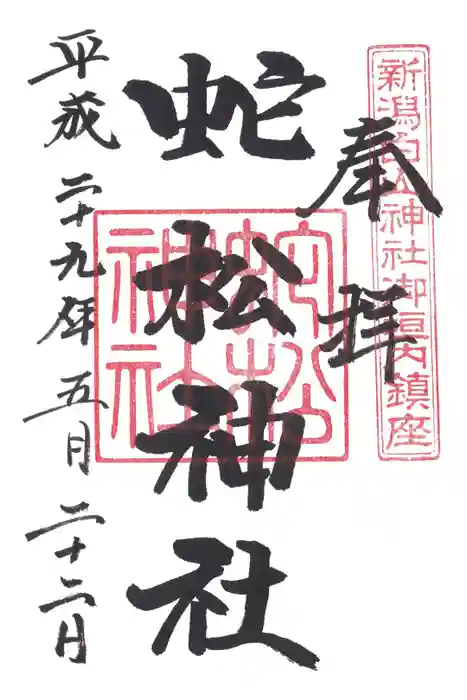 新潟白山神社御垣内鎮座
奉拝
蛇松神社
蛇松神社
平成二十九年五月二十二日